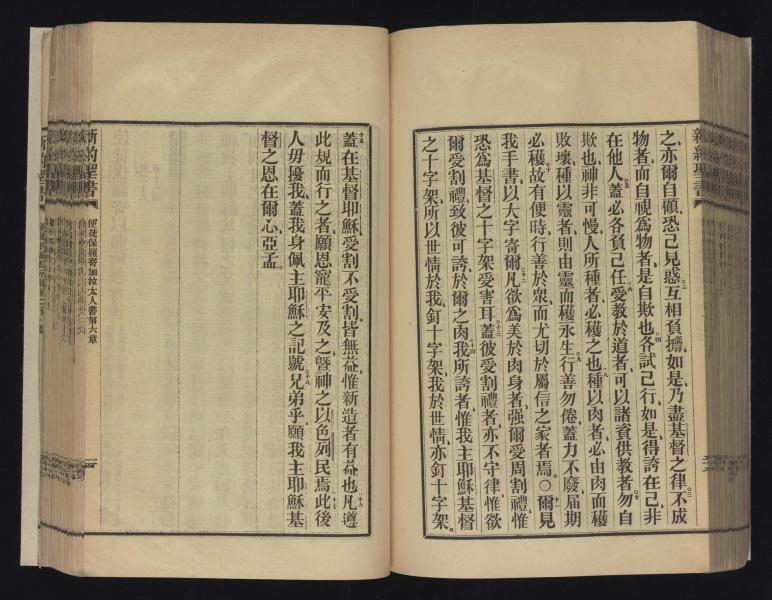 新約聖書
之亦爾自顧恐己見惑二互相負擔如是乃盡基督之律三不成
物者而自視爲物者是自欺也四各試己行如是得誇在己非
在他人五蓋必各負己任六受教於道者可以諸資供教者七勿自
欺也神非可慢人所種者必穫之也八種以肉者必由肉而穫
敗壞種以靈者則由靈而穫永生九行善勿倦蓋力不廢屆期
必穫十故有便時行善於衆而尤切於屬信之家者焉。○十一爾見
我手書以大字寄爾十二凡欲爲美於肉身者强爾受周割禮惟
恐爲基督之十字架受害耳十三蓋彼受割禮者亦不守律惟欲
爾受割禮致彼可誇於爾之肉十四我所誇者惟我主耶穌基督
之十字架所以世情於我釘十字架我於世情亦釘十字架。
十五蓋在基督耶穌受割不受割皆無益惟新造者有益也十六凡遵
此規而行之者願恩寵平安及之曁神之以色列民焉十七此後
人毋擾我蓋我身佩主耶穌之記號十八兄弟乎願我主耶穌基
督之恩在爾心亞孟。
新約聖書
使徒保羅寄加拉太人書第六章